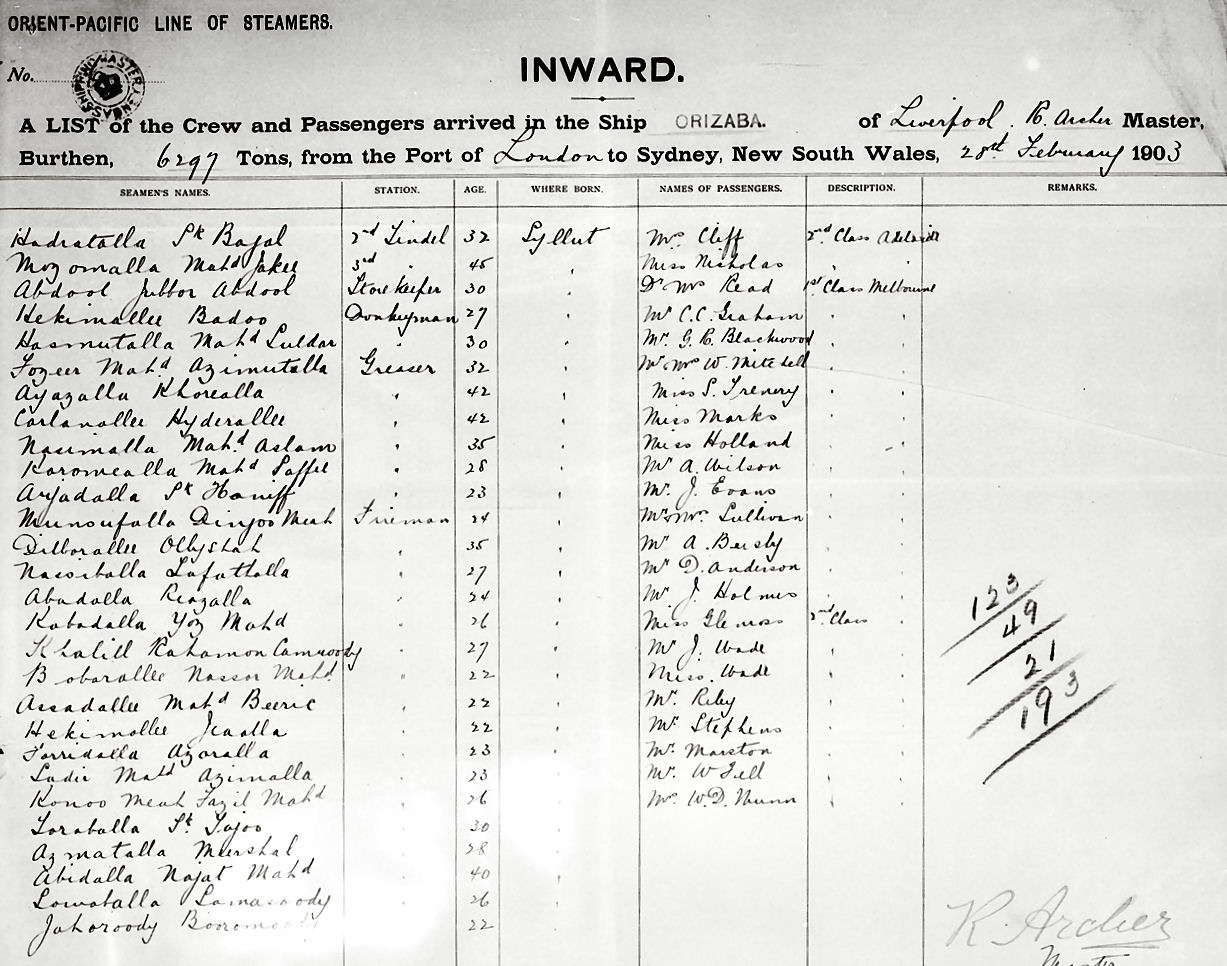 ORIENT-PACIFIC LINE OF STEAMERS.
No.
INWARD.
A LIST of the Crew and Passengers arrived in the Ship ORIZABA. of Liverpool. R. Archer Master,
Burthen, 6297 Tons, from the Port of London to Sydney, New South Wales, 28th February 1903
SEAMEN'S NAMES. STATION. AGE. WHERE BORN. NAMES OF PASSENGERS. DESCRIPTION. REMARKS.
Hadratalla Sk Bagal 2nd Tindel 32 Syllut Mrs Cliff 2nd Class Adelaide
Mozomalla Mahd Jakee 3rd 45 " Miss Nicholas
Abdool Jubbor Abdool Storekeeper 30 " Dr Mrs Read 1st Class Melbourne
Hekimallee Badoo Donkeyman 27 " Mr C.C. Graham " "
Hasmutalla Mahd Suldar " 30 " Mr. G. R. Blackwood " "
Fozeer Mahd. Azimutalla Greaser 32 " Mr Mrs W. Mitchell " "
Ayazalla Khorealla " 42 " Miss S. Trenery " "
Carlanallee Hyderallee " 42 " Miss Marks " "
Nasimalla Mahd. Aslam " 35 " Miss Holland " "
Koromealla Mahd Saffee " 28 " Mr A. Wilson " "
Arjadalla Sk Haniff " 23 " Mr. J. Evans " "
Munsufalla Dinjoo Meah Fireman 24 " Mr Mrs. Sullivan " "
Dilborallee Ollyshah " 35 " Mr A. Beesly " "
Nassiballa Lafattalla " 27 " Mr D. Anderson " "
Abadalla Reazalla " 24 " Mr J. Holmes " "
Kabadalla Yoz Mahd " 26 " Miss Glenross 2nd Class "
Khalill Rahamon Camroody " 27 " Mr J. Wade " "
Bobarallee Nassor Mahd " 22 " Miss. Wade " "
Assadallee Mahd Beeric " 22 " Mr. Riley " "
Hekimollee Jeaalla " 22 " Mr Stephens " "
Torridalla Azoralla " 23 " Mr. Marston " "
Sadir Mahd Azimalla " 23 " Mr. W Tell " "
Konoo Meah Fazil Mahd " 26 " Mr. W.D. Munn " "
Toraballa Sk. Tajoo " 30 "
Azmatalla Murshal " 28 "
Abidalla Najat Mahd " 40 "
Lowaballa Samasoody " 26 "
Jahoroody " 22 "
123
49
21
193
R. Archer
Master